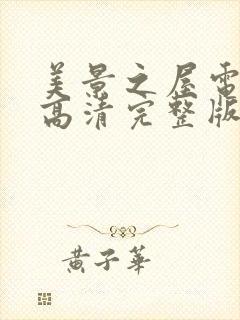 美景之屋電
高清完整版
黃子華